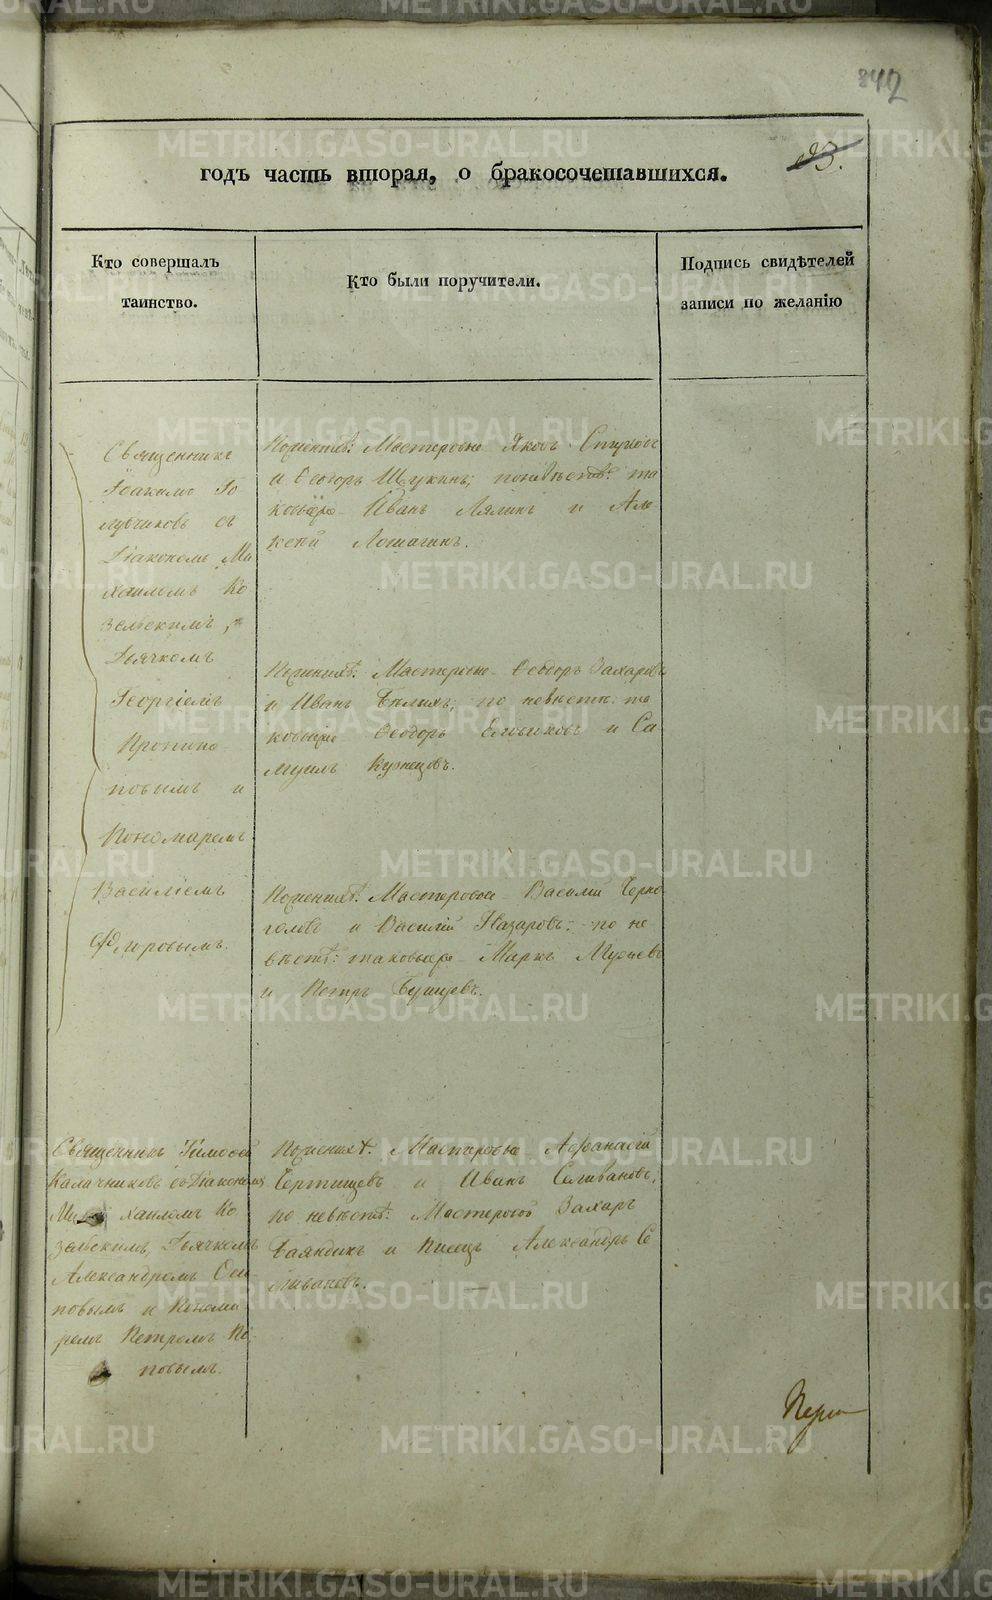 842
23.
годъ часть вторая, о бракосочетавшихся.
Кто совершалъ
таинство.
Кто были поручители.
Подпись свидѣтелей
записи по желанію
Священникъ
Іоакимъ Го
лубчиковъ съ
Діакономъ Ми
хаиломъ Ко
зельскимъ,
Дьячкомъ
Георгіемъ
повымъ и
Пономаремъ
Василіемъ
Флоровымъ.
Пожених: Мастеровые Яковъ
и Ѳеодоръ Щукинъ; поневѣстѣ: та
ковыеже Иванъ Лялинъ и Але
ксѣй Лошагинъ.
Пожених: Мастеровые Ѳеодоръ Захаровъ
и Иванъ Бѣлыхъ; по невѣстѣ: та
ковыеже Ѳеодоръ и Са
муилъ Кузнецовъ.
Пожених: Мастеровые Василій Черно
головъ и Василій Назаровъ: по не
вѣстѣ: таковыеже Марко
и Петръ
Священникъ Тимофей
Калачниковъ съ Діакономъ
Михаиломъ Ко
зельскимъ, Дьячкомъ
Александромъ Оси
повымъ и Понома
ремъ Петромъ По
повымъ.
Пожених: Мастеровые Афанасій
Чертищевъ и Иванъ Селивановъ,
по невѣстѣ: Мастеровой Захаръ
Баяндинъ и Писецъ Александръ Се
ливановъ.
METRIKI.GASO-URAL.RU